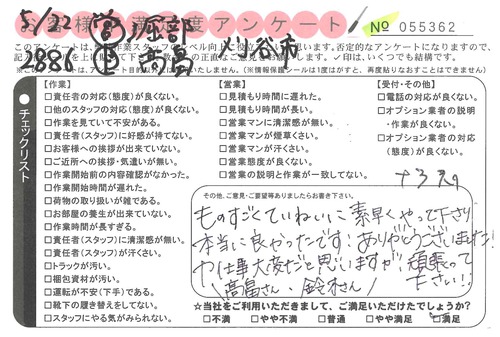 5/22 営 堀部
お客様満足度アンケート
刈谷市
No 055362
2880
チェックリスト
【作業】
□責任者の対応(態度)が良くない。
□他のスタッフの対応(態度)が良くない。
□作業を見ていて不安がある。
□責任者(スタッフ)に好感が持てない。
□お客様への挨拶が出来ていない。
□ご近所への挨拶・気遣いが無い。
□作業開始前の内容確認がなかった。
□作業開始時間が遅れた。
□荷物の取り扱いが雑である。
□お部屋の養生が出来ていない。
□作業時間が長すぎる。
□責任者(スタッフ)に清潔感が無い。
□責任者(スタッフ)が汗くさい。
□トラックが汚い。
□梱包資材が汚い。
□運転が不安(下手)である。
□靴下の履き替えをしてない。
□スタッフにやる気がみられない。
【営業】
□見積もり時間に遅れた。
□見積もり時間が長い。
□営業マンに清潔感が無い。
□営業マンが煙草くさい。
□営業マンが汗くさい。
□営業態度が良くない。
□営業の説明と作業が一致してない。
【受付・その他】
□電話の対応が良くない。
□オプション業者の説明
・作業が良くない。
□オプション業者の対応
(態度)が良くない。
その他、ご意見・ご要望等ありましたらお書き下さい。
ものすごくていねいに素早くやって下さり
本当に良かったです。ありがとうございました!
お仕事大変だと思いますが、頑張って
下さい!!
高畠さん、鈴木さん
☆当社をご利用いただきまして、ご満足いただけたでしょうか?
□不満 □やや不満 □普通 □やや満足 □満足